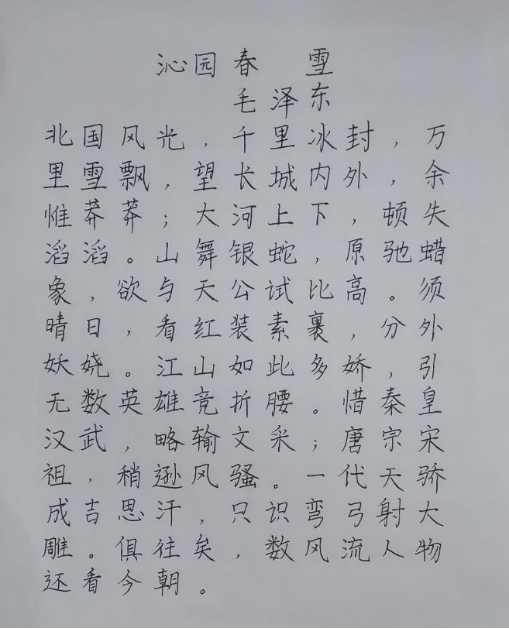 沁园春 雪
毛泽东
北国风光，千里冰封，万
里雪飘，望长城内外，余
惟莽莽；大河上下，顿失
滔滔。山舞银蛇，原驰蜡
象，欲与天公试比高。须
晴日，看红装素裹，分外
妖娆。江山如此多娇，引
无数英雄竞折腰。惜秦皇
汉武，略输文采；唐宗宋
祖，稍逊风骚。一代天骄
成吉思汗，只识弯弓射大
雕。俱往矣，数风流人物
还看今朝。